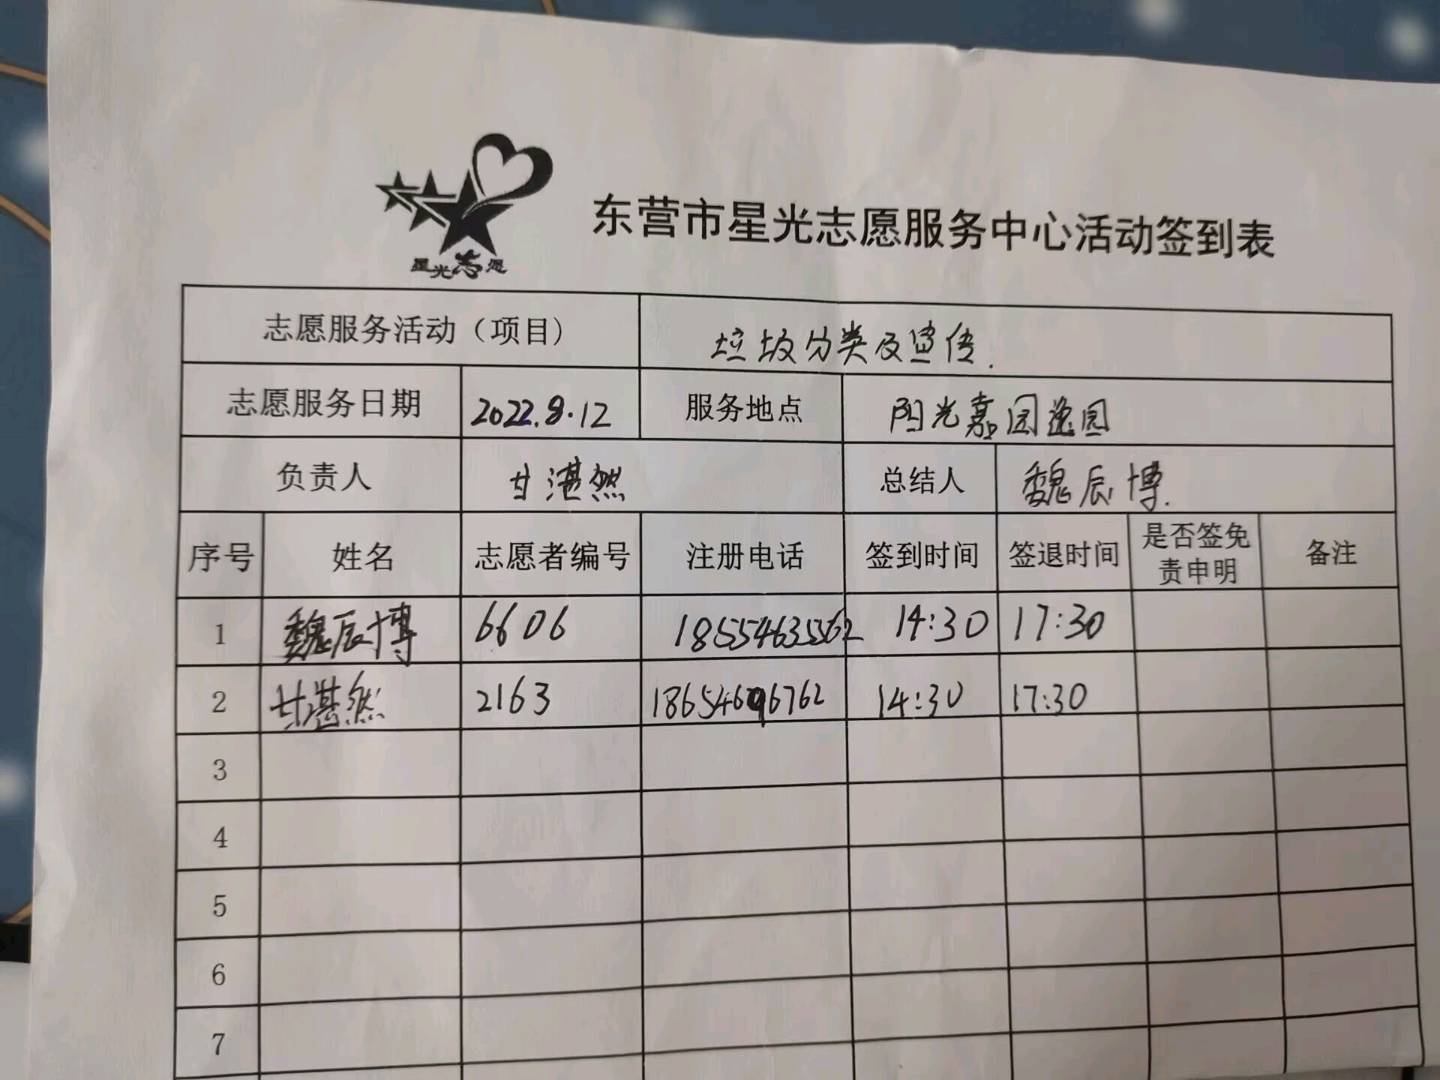 星光志愿
东营市星光志愿服务中心活动签到表
志愿服务活动（项目） 垃圾分类及宣传.
志愿服务日期 2022.8.12 服务地点 阳光嘉园逸园
负责人 甘湛然 总结人 魏辰博.
序号 姓名 志愿者编号 注册电话 签到时间 签退时间 是否签免责申明 备注
1 魏辰博 6606 18554635562 14:30 17:30
2 甘湛然 2163 18654696762 14:30 17:30
3
4
5
6
7